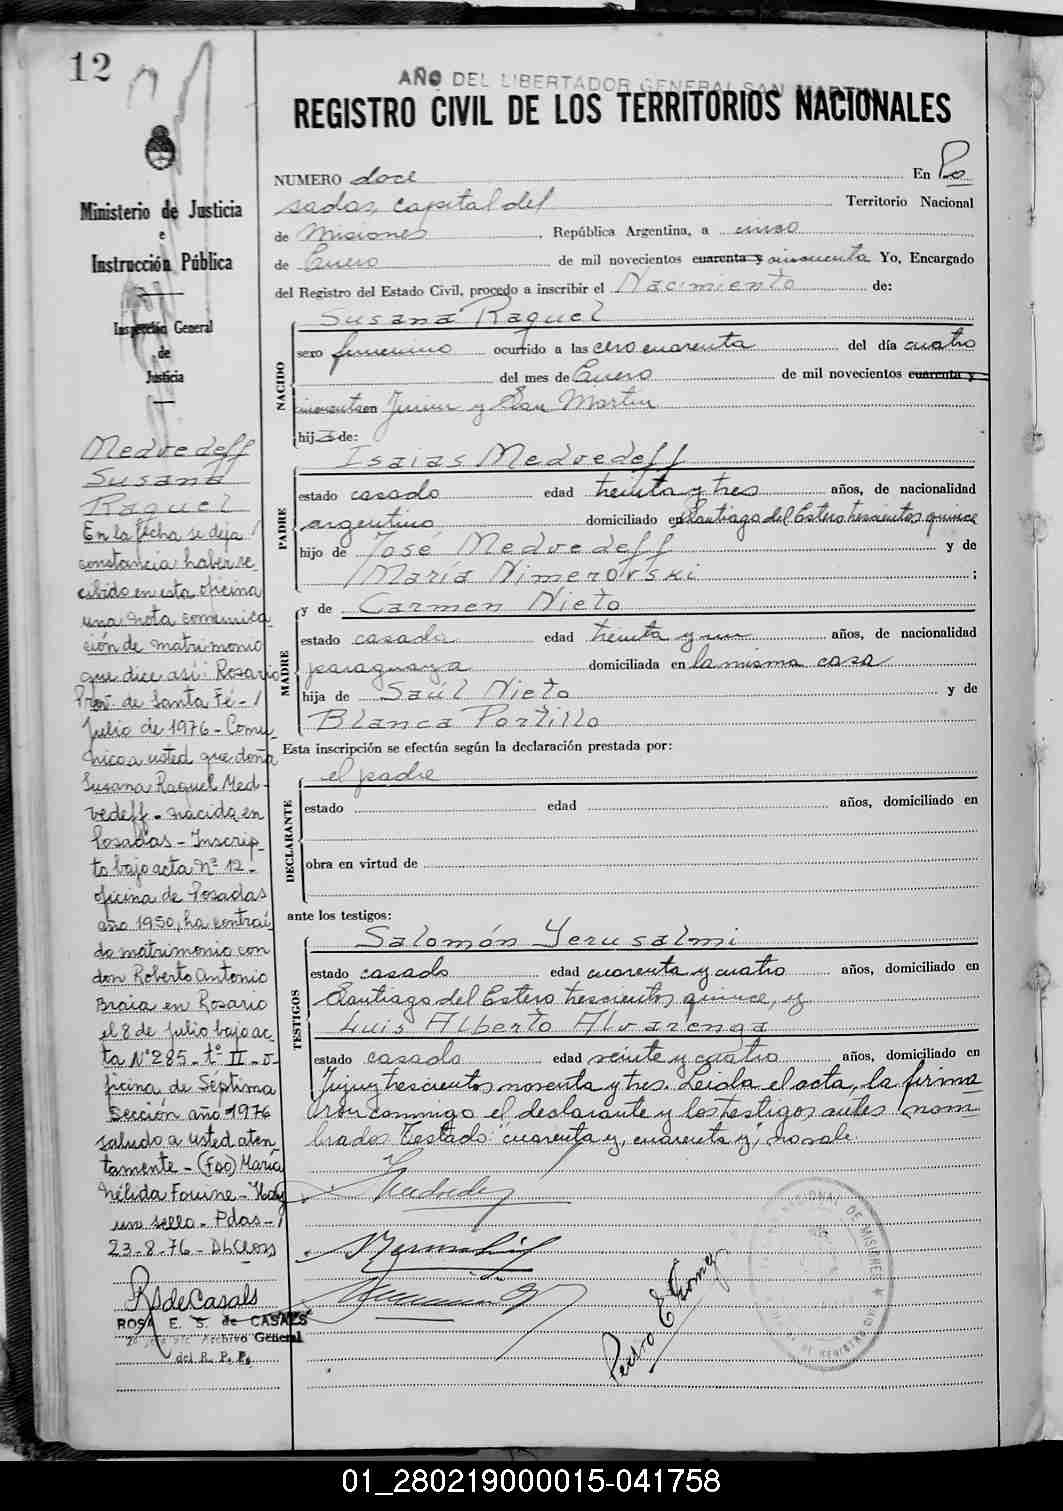 12
AÑO DEL LIBERTADOR GENERAL SAN MARTIN
REGISTRO CIVIL DE LOS TERRITORIOS NACIONALES
Ministerio de Justicia
e
Instrucción Pública
Inspección General
de
Justicia
Medvedeff
Susana
Raquel
En la fecha se deja
constancia haber re-
cibido en esta oficina
una nota comunica-
ción de matrimonio
que dice así: Rosario
Prov. de Santa Fé -
Julio de 1976 - Comu-
nico a usted que doña
Susana Raquel Med-
vedeff - nacida en
Posadas - Inscrip-
ta bajo acta Nº 12 -
oficina de Posadas
año 1950, ha contraí-
do matrimonio con
don Roberto Antonio
Braia en Rosario
el 8 de julio bajo ac-
ta Nº 285 - tº II - o-
ficina de Séptima
Sección año 1976
saludo a usted aten-
tamente - (Fdo) María
Nélida Fouine - Hay
un sello - Pdas -
23-8-76 -
RSdeCasals
ROSA E. S. de CASALS
Archivo General
del R. P. P.
NUMERO doce En Po
sadas, capital del Territorio Nacional
de Misiones, República Argentina, a cinco
de Enero de mil novecientos cuarenta y cincuenta Yo, Encargado
del Registro del Estado Civil, procedo a inscribir el Nacimiento de:
NACIDO
Susana Raquel
sexo femenino ocurrido a las cero cuarenta del día cuatro
del mes de Enero de mil novecientos cuarenta y
cincuenta en Junin y San Martin
hija de:
PADRE
Isaias Medvedeff
estado casado edad treinta y tres años, de nacionalidad
argentino domiciliado en Santiago del Estero trescientos quince
hijo de José Medvedeff y de
María Nimerovski ;
MADRE
y de Carmen Nieto
estado casada edad treinta y un años, de nacionalidad
paraguaya domiciliada en la misma casa
hija de Saúl Nieto y de
Blanca Portillo
Esta inscripción se efectúa según la declaración prestada por:
DECLARANTE
el padre
estado edad años, domiciliado en
obra en virtud de
ante los testigos:
TESTIGOS
Salomón Yerusalmi
estado casado edad cuarenta y cuatro años, domiciliado en
Santiago del Estero trescientos quince, y
Luis Alberto Alvarenga
estado casado edad veinte y cuatro años, domiciliado en
Jujuy trescientos noventa y tres. Leida el acta, la firma
ron conmigo el declarante y los testigos antes nom-
brados. Testado "cuarenta y, cuarenta y", no vale.
Pedro E Gomez
01_280219000015-041758